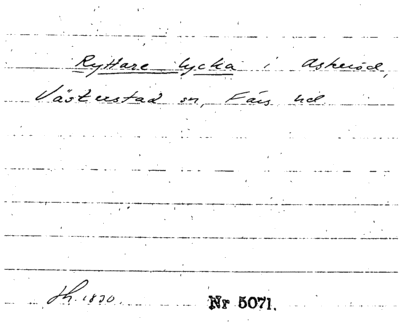 Ryttare lycka i Askeröd,
Västerstad sn, Färs hd
Sk. 1830. Nr 5071.